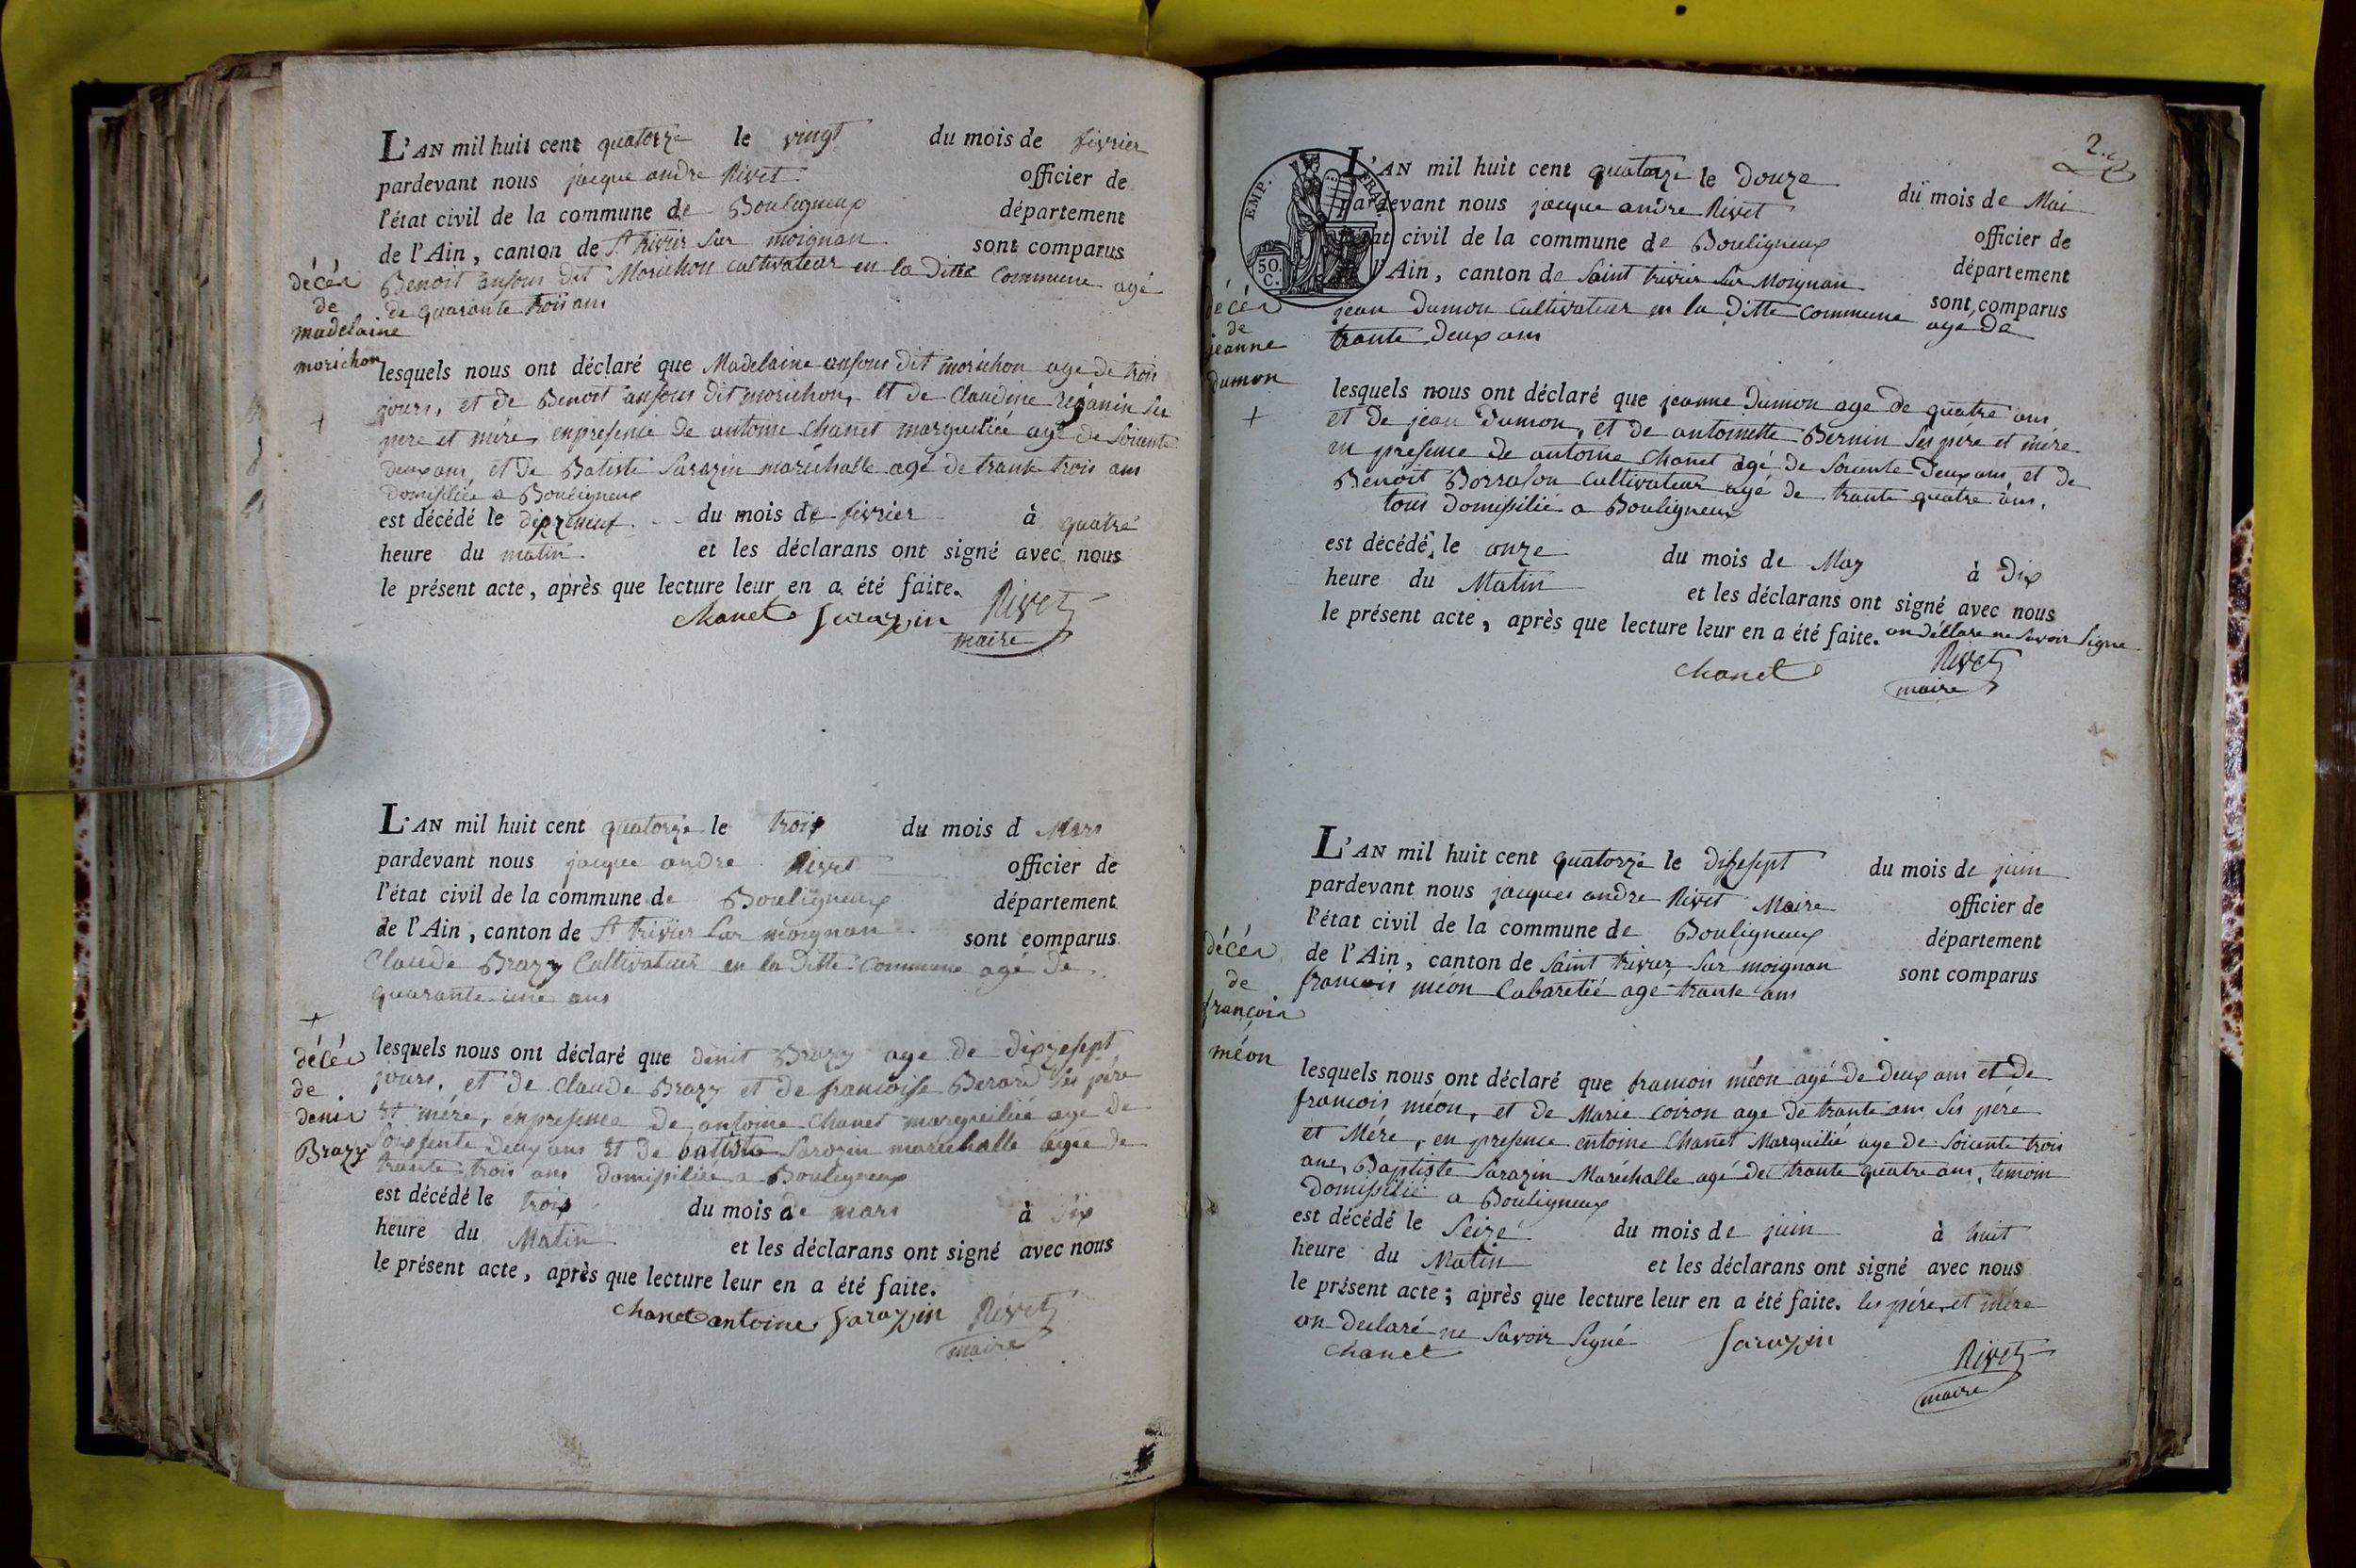 L'AN mil huit cent quatorze le vingt du mois de fivrier
pardevant nous jacque andre Rivet officier de
l'état civil de la commune de Bouligneux département
de l'Ain, canton de St trivier sur moignan sont comparus
Benoit ansous dit Morichon cultivateur en la Ditte Commune agé
de quarante trois ans
décés
de
madelaine
morichon
lesquels nous ont déclaré que Madelaine ansous dit morichon age de trois
jours, et de Benoit ansous dit morichon, et de Claudine ses
pere et mére, enpresence de antoine Chanet margueilié agé de soicente
deux ans, et de Batiste Sarazin maréchalle agé de trante trois ans
domissiliée a Bouligneux
est décédé le dixzeneuf du mois de fivrier à quatre
heure du matin et les déclarans ont signé avec nous
le présent acte, après que lecture leur en a été faite.
Chanet Sarazin Rivet
maire
L'AN mil huit cent quatorze le trois du mois d Mars
pardevant nous jacque andre Rivet officier de
l'état civil de la commune de Bouligneux département
de l'Ain, canton de St trivier sur moignan sont comparus
Claude Brazy Cultivateur en la Ditte Commune agé de
quarante une ans
décés
de
denis
Brazy
lesquels nous ont déclaré que denit Brazy age de dixzesept
jours, et de Claude Brazy et de francoise Berard ses pére
et mére, enpresence de antoine Chanet margueiliée age de
soixsente deux ans et de batiste Sarazin marechalle agée de
trante trois ans domissiliée a Bouligneux
est décédé le trois du mois de mars à six
heure du Matin et les déclarans ont signé avec nous
le présent acte, après que lecture leur en a été faite.
Chanet antoine Sarazin Rivet
maire
2.
EMP. FRAN.
50. C.
L'AN mil huit cent quatorze le Douze du mois de Mai
pardevant nous jacque andre Rivet officier de
état civil de la commune de Bouligneux département
l'Ain, canton de Saint trivier sur Moignan sont comparus
jean Dumon Cultivateur en la Ditte Commune agé de
trante deux ans
décés
de
jeanne
dumon
lesquels nous ont déclaré que jeanne Dumon age de quatre ans
et de jean Dumon, et de antoinette Bernin ses pére et mére
en presence de antoine Chanet agé de soicente Deux ans, et de
Benoit Borrason Cultivateur agé de trante quatre ans,
tous Domissilié a Bouligneux
est décédé, le onze du mois de May à Dix
heure du Matin et les déclarans ont signé avec nous
le présent acte, après que lecture leur en a été faite. on déclare ne savoir signe
Chanet Rivet
maire
L'AN mil huit cent quatorze le dissesept du mois de juin
pardevant nous jacques andre Rivet Maire officier de
l'état civil de la commune de Bouligneux département
de l'Ain, canton de Saint trivier sur moignan sont comparus
francois méon Cabaretié agé trante ans
décés
de
françois
méon
lesquels nous ont déclaré que francois méon agé de deux ans et de
francois méon, et de Marie coiron age de trante ans ses pére
et Mére, en presence entoine Chanet Marguilié age de soicente trois
ane, Baptiste Sarazin Marechalle agé de trante quatre ans, temoin
Domissilié a Bouligneux
est décédé le Seize du mois de juin à huit
heure du Matin et les déclarans ont signé avec nous
le présent acte; après que lecture leur en a été faite. les pére et mére
on declaré ne savoir signé
Chanet Sarazin Rivet
maire